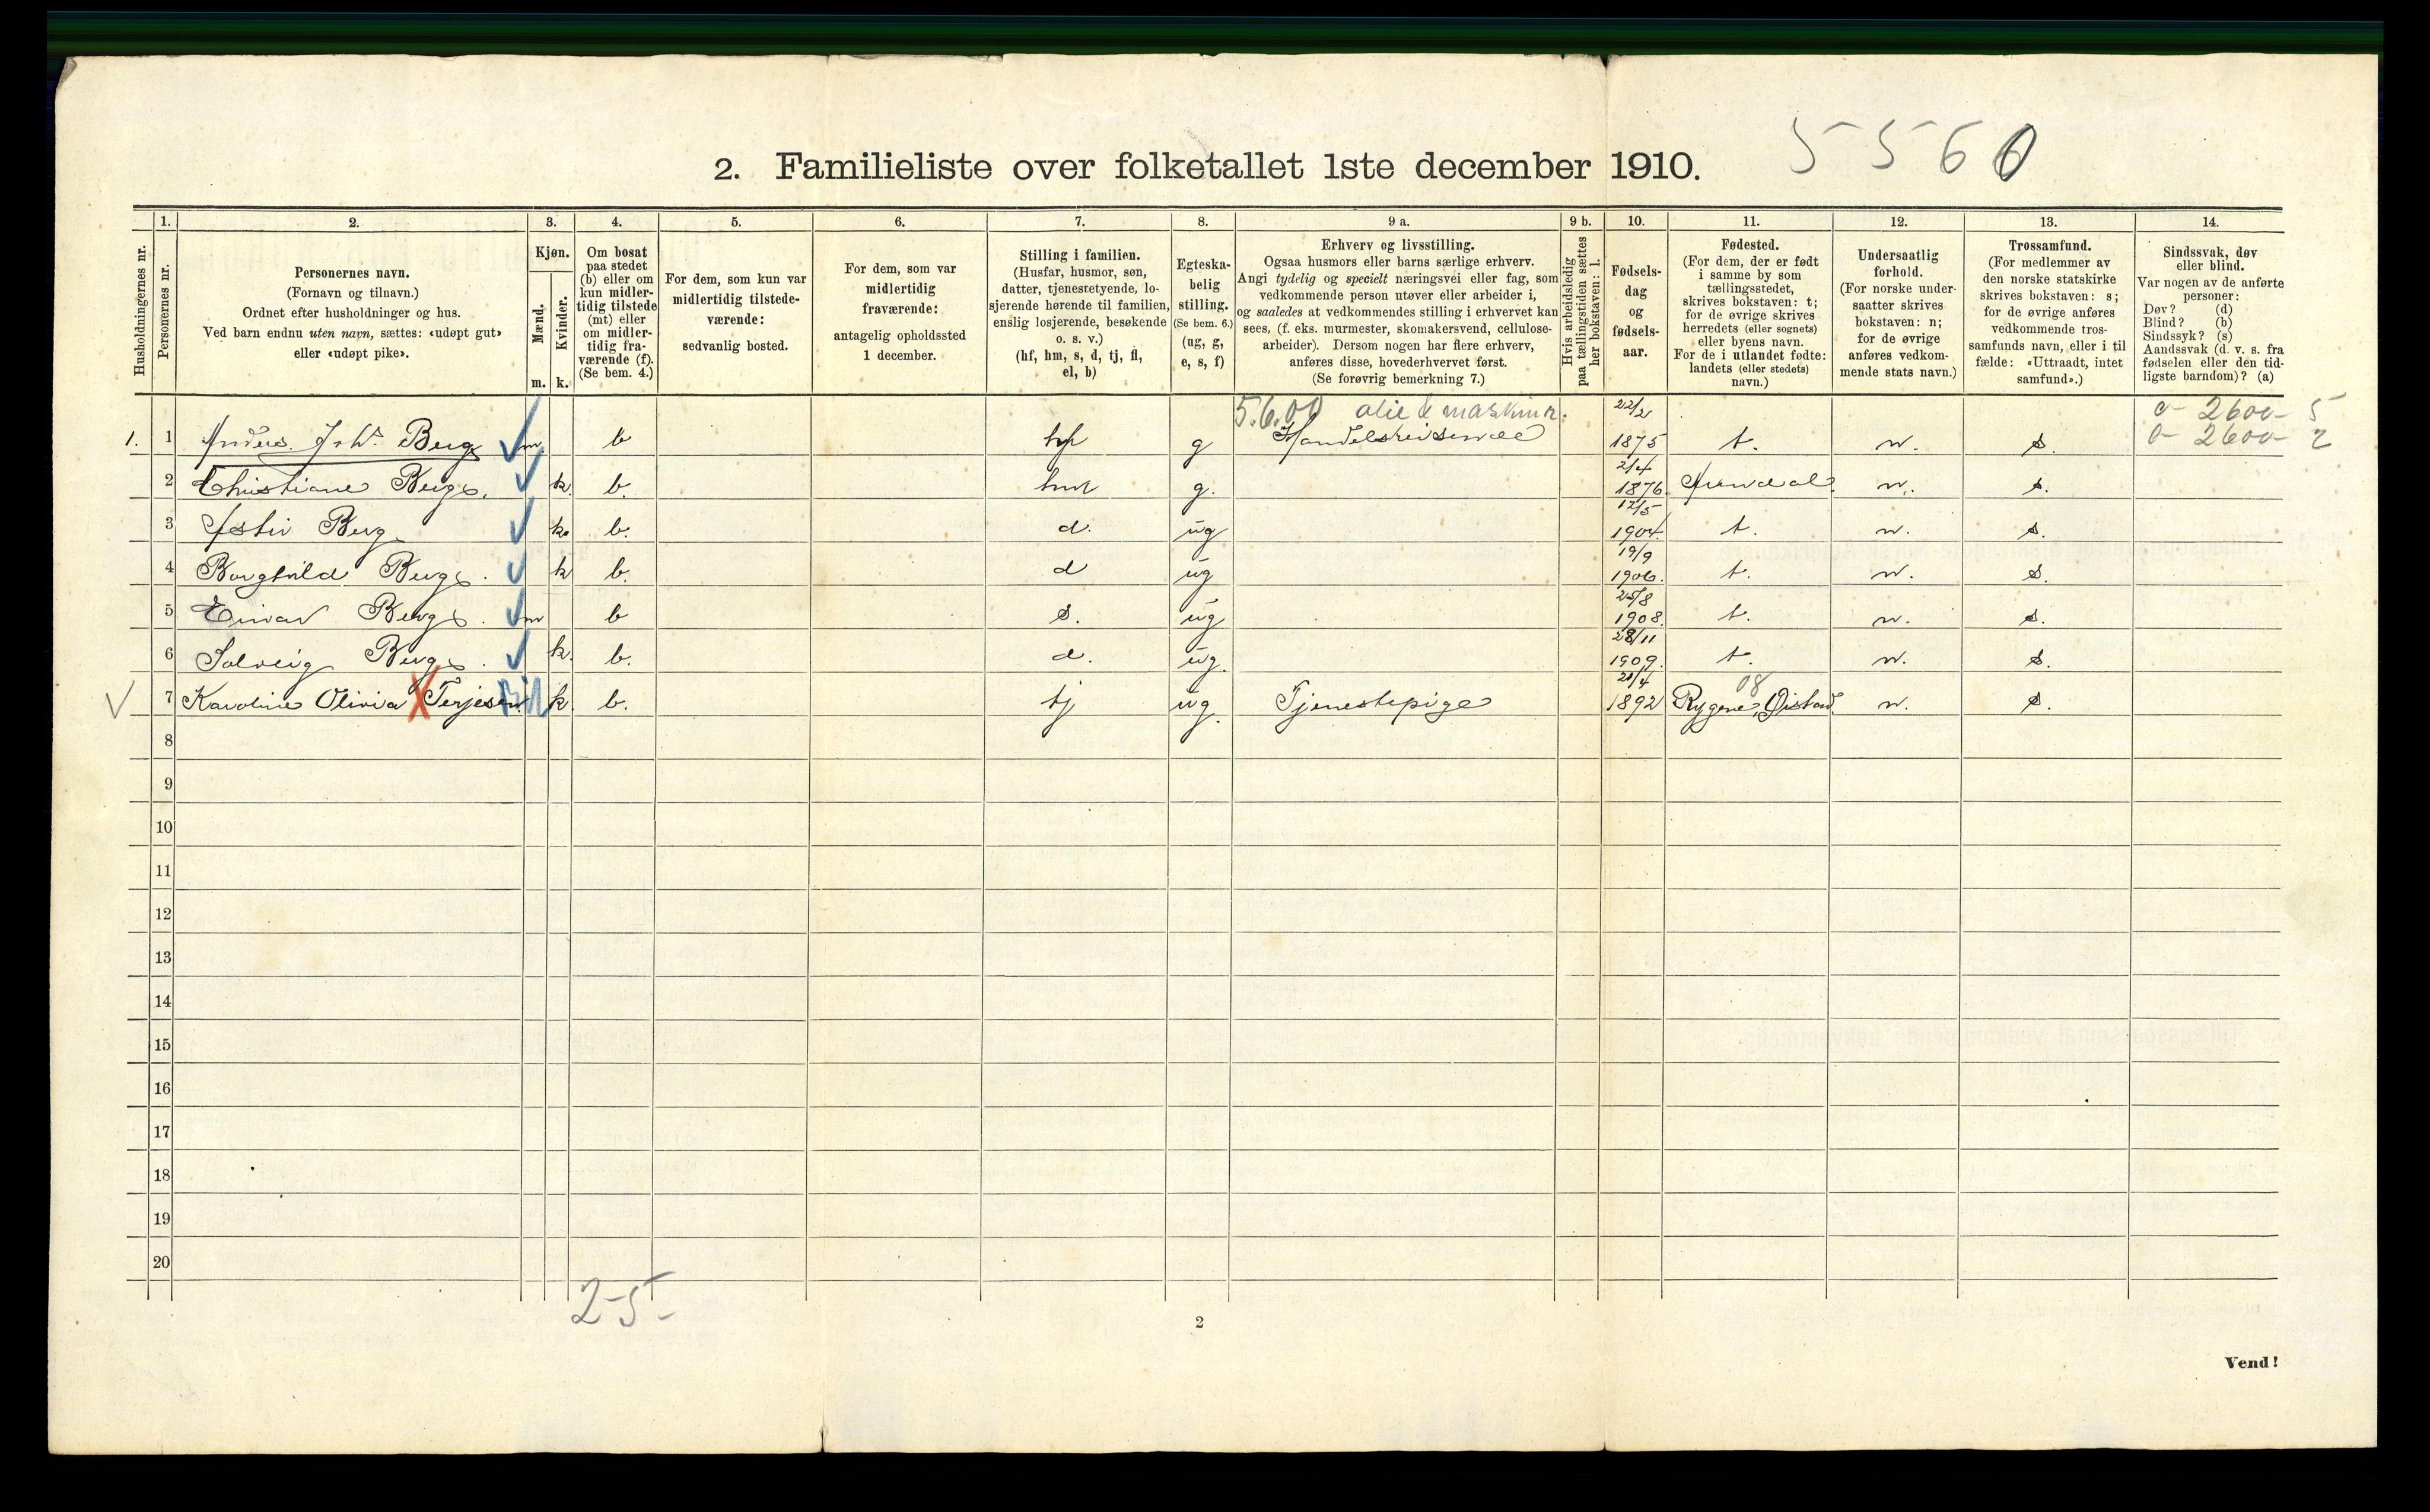 5560
2. Familieliste over folketallet 1ste december 1910.
Husholdningernes nr.
1.
Personernes nr.
2.
Personernes navn.
(Fornavn og tilnavn.)
Ordnet efter husholdninger og hus.
Ved barn endnu uten navn, sættes: «udøpt gut»
eller «udøpt pike».
3.
Kjøn.
Mænd.
Kvinder.
m. k.
4.
Om bosat
paa stedet
(b) eller om
kun midler-
tidig tilstede
(mt) eller
om midler-
tidig fra-
værende (f).
(Se bem. 4.)
5.
For dem, som kun var
midlertidig tilstede-
værende:
sedvanlig bosted.
6.
For dem, som var
midlertidig
fraværende:
antagelig opholdssted
1 december.
7.
Stilling i familien.
(Husfar, husmor, søn,
datter, tjenestetyende, lo-
sjerende hørende til familien,
enslig losjerende, besøkende
o. s. v.)
(hf, hm, s, d, tj, fl,
el, b)
8.
Egteska-
belig
stilling.
(Se bem. 6.)
(ug, g,
e, s, f)
9 a.
Erhverv og livsstilling.
Ogsaa husmors eller barns særlige erhverv.
Angi tydelig og specielt næringsvei eller fag, som
vedkommende person utøver eller arbeider i,
og saaledes at vedkommendes stilling i erhvervet kan
sees, (f. eks. murmester, skomakersvend, cellulose-
arbeider). Dersom nogen har flere erhverv,
anføres disse, hovederhvervet først.
(Se forøvrig bemerkning 7.)
9 b.
Hvis arbeidsledig
paa tællingstiden sættes
her bokstaven: l.
10.
Fødsels-
dag
og
fødsels-
aar.
11.
Fødested.
(For dem, der er født
i samme by som
tællingsstedet,
skrives bokstaven: t;
for de øvrige skrives
herredets (eller sognets)
eller byens navn.
For de i utlandet fødte:
landets (eller stedets)
navn.)
12.
Undersaatlig
forhold.
(For norske under-
saatter skrives
bokstaven: n;
for de øvrige
anføres vedkom-
mende stats navn.)
13.
Trossamfund.
(For medlemmer av
den norske statskirke
skrives bokstaven: s;
for de øvrige anføres
vedkommende tros-
samfunds navn, eller i til
fælde: «Uttraadt, intet
samfund».)
14.
Sindssvak, døv
eller blind.
Var nogen av de anførte
personer:
Døv? (d)
Blind? (b)
Sindssyk? (s)
Aandssvak (d. v. s. fra
fødselen eller den tid-
ligste barndom)? (a)
5.6.01 olie & maskinr. 22/2 0- 2600- 5
1. 1 Anders Johs Berg m b hf g Handelsreisende 1875 t. n. s. 0- 2600- 2
2 Christiane Berg. k. b. hm g. 2/4 1876 Arendal. n. s.
3 Astri Berg k. b. d. ug 12/5 1904. t. n. s.
4 Borghild Berg. k b. d ug 19/9 1906. t. n. s.
5 Einar Berg. m b s. ug 25/8 1908. t. n. s.
6 Solveig Berg. k. b. d. ug. 28/11 1909. t. n. s.
08
7 Karoline Olivia Terjesen k. b. tj ug. Tjenestepige 21/4 1892 Rygene, Øistad n. s.
8
9
10
11
12
13
14
15
16
17
18
19
20
2-5-
2
Vend!